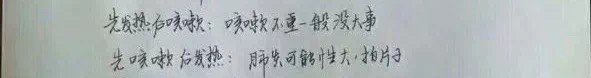 先发热后咳嗽：咳嗽不重一般没大事
先咳嗽后发热：肺炎可能性大，拍片子